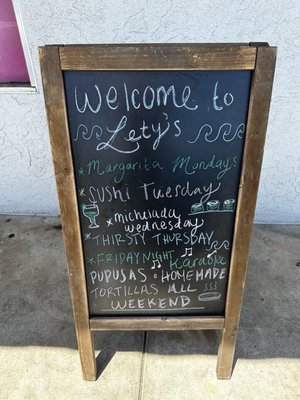 Welcome to
Lety's
* Margarita Mondays
* Sushi Tuesday
* michalada
wednesday
* THIRSTY THURSDAY
* FRIDAY NIGHT Karaoke
PUPUSAS * HOMEMADE
TORTILLAS ALL
WEEKEND